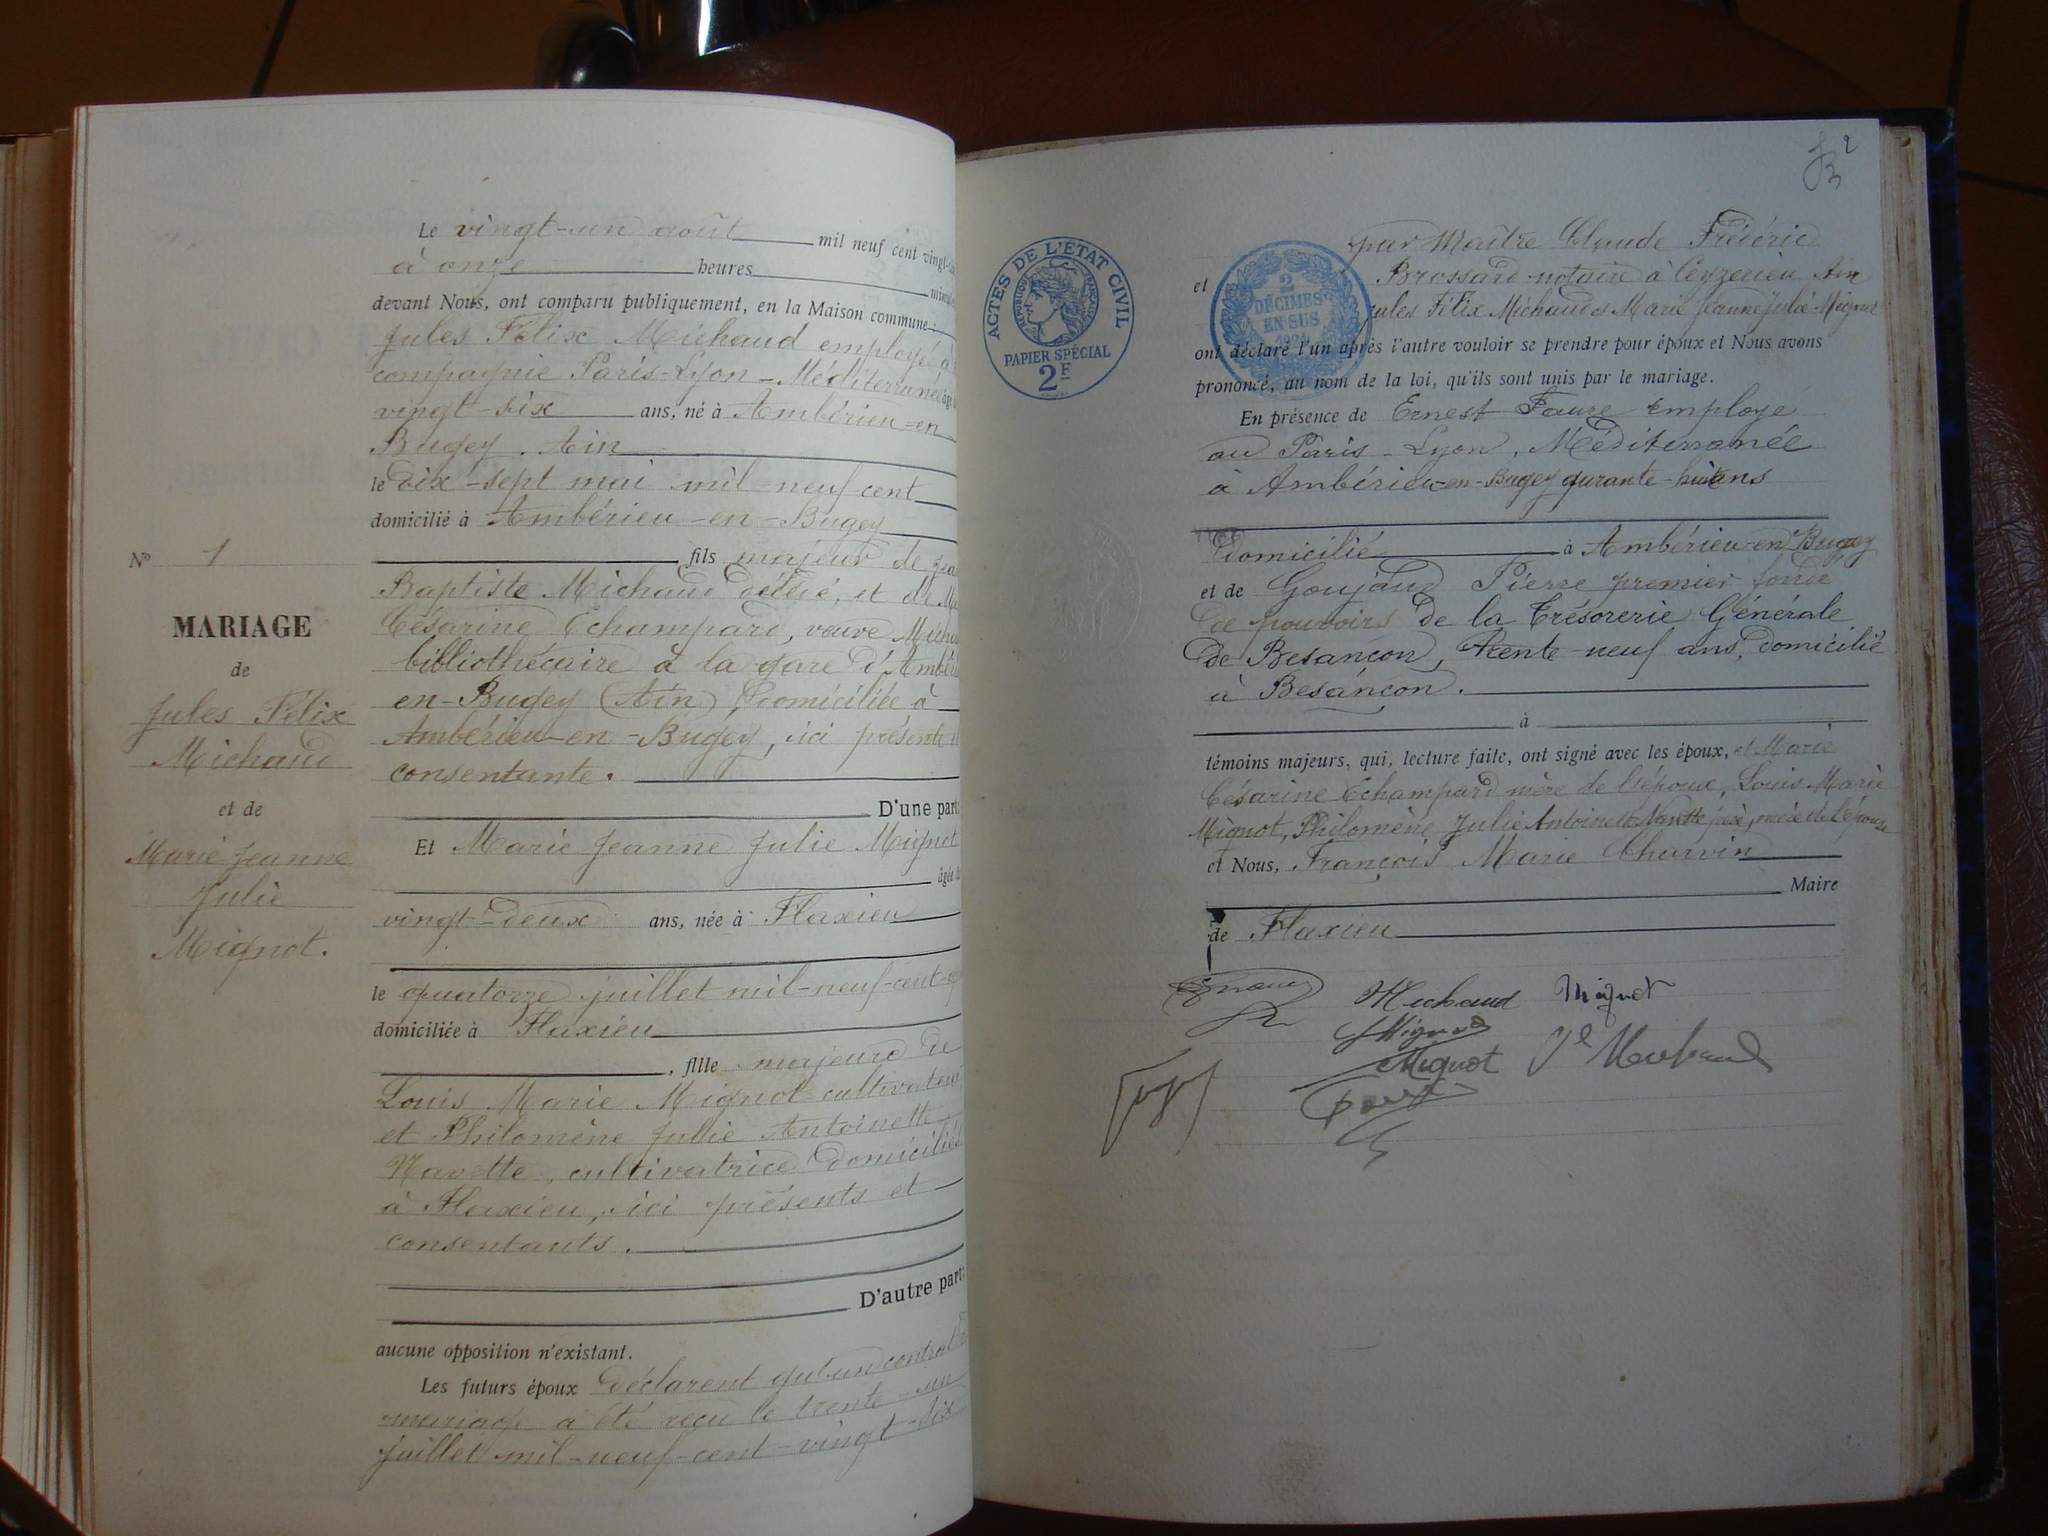 Nº 1
MARIAGE
de
Jules Félix
Michaud
et de
Marie Jeanne
Julie
Mignot.
Le vingt-un août mil neuf cent
à onze heures
devant Nous, ont comparu publiquement, en la Maison commune:
Jules Félix Michaud employé à
compagnie Paris-Lyon-Méditerranée
vingt-six ans, né à Ambérieu-en
Bugey. Ain
le dix-sept mai mil-neuf-cent
domicilié à Ambérieu-en-Bugey
fils majeur de
Baptiste Michaud décédé, et de
Césarine Echampard, veuve
bibliothécaire à la gare
en-Bugey (Ain) domiciliée à
Ambérieu-en-Bugey, ici présente
consentante.
D'une part:
Et Marie Jeanne Julie Mignot
âgée
vingt-deux ans, née à Flaxieu
le quatorze juillet mil-neuf-cent-
domiciliée à Flaxieu
, fille majeure de
Louis Marie Mignot cultivateur
et Philomène Julie Antoinette
Navette, cultivatrice domiciliés
à Flaxieu, ici présents et
consentants.
D'autre part:
aucune opposition n'existant.
Les futurs époux déclarent qu'un contrat
mariage a été reçu le trente-un
juillet mil-neuf-cent-vingt-six
2
ACTES DE L'ETAT CIVIL
REPUBLIQUE FRANÇAISE
PAPIER SPÉCIAL
2F
2
DÉCIMES
EN SUS
par Maître Claude Frédéric
Brossard notaire à Ceyzerieu Ain
et Jules Félix Michaud et Marie Jeanne Julie Mignot
ont déclaré l'un après l'autre vouloir se prendre pour époux et Nous avons
prononcé, au nom de la loi, qu'ils sont unis par le mariage.
En présence de Ernest Faure employé
au Paris-Lyon, Méditerranée
à Ambérieu-en-Bugey qurante-huit ans
domicilié à Ambérieu-en-Bugey
et de Goujaud Pierre premier fondé
de pouvoirs de la Trésorerie Générale
de Besançon, trente-neuf ans, domicilié
à Besançon.
à
témoins majeurs, qui, lecture faite, ont signé avec les époux, et Marie
Césarine Echampard mère de l'époux, Louis Marie
Mignot, Philomène Julie Antoinette Navette père, mère de l'épouse
et Nous, François Marie Charvin
Maire
de Flaxieu
Michaud Mignot
Mignot
Mignot